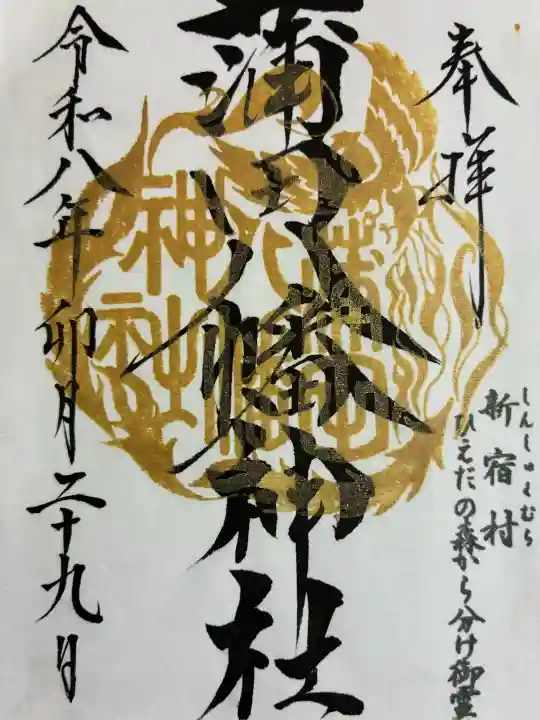 奉拝
新宿村
しんしゅくむら
ひえだの森から分け御霊
蒲田八幡神社
蒲田
八幡
神社
令和八年卯月二十九日